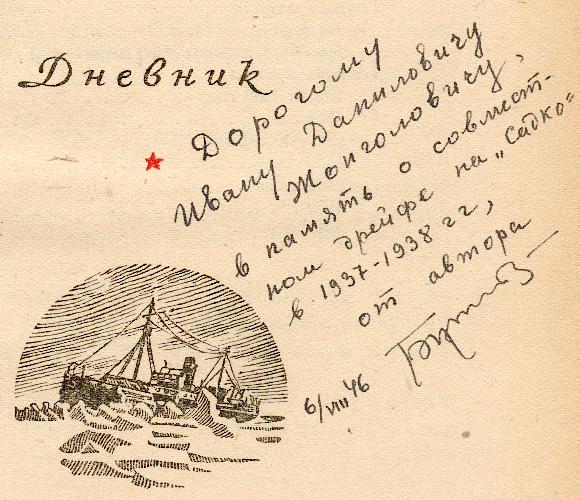 Дневник
Дорогому
Ивану Даниловичу
Жонголовичу,
в память о совмест-
ном дрейфе на „Садко"
в 1937-1938 гг,
от автора
6/VIII 46